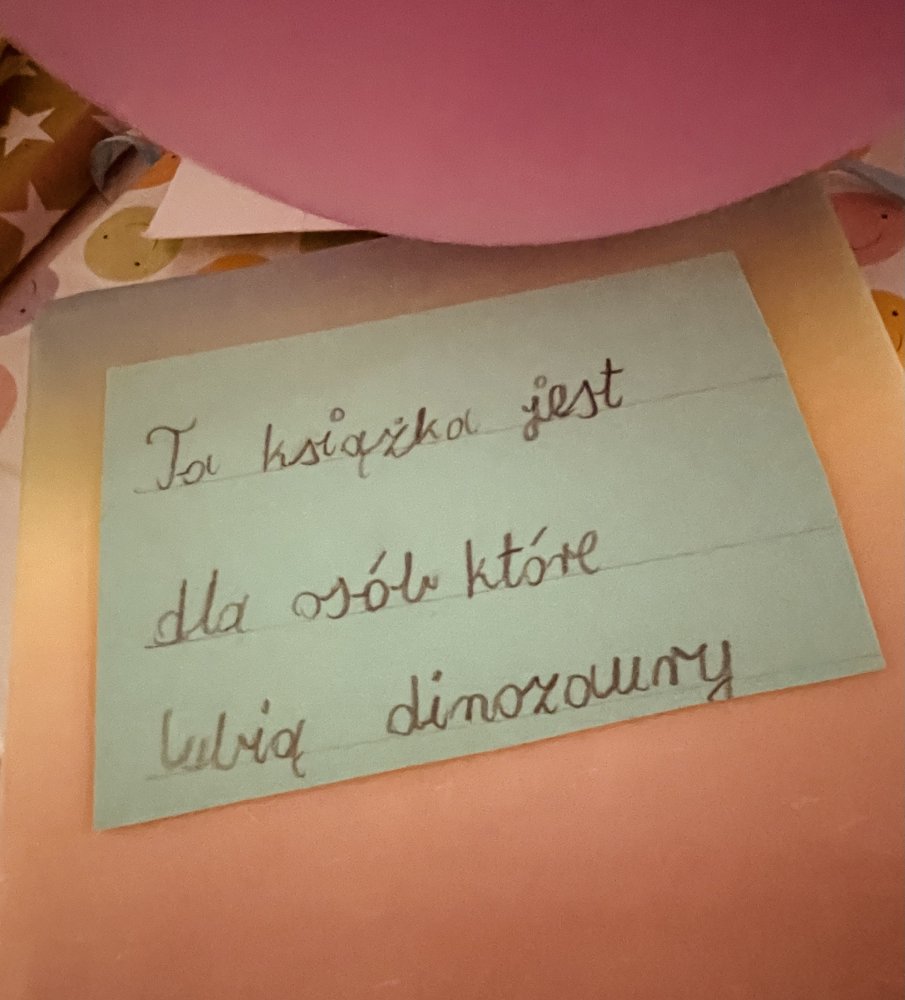 Ta książka jest
dla osób które
lubią dinozaury